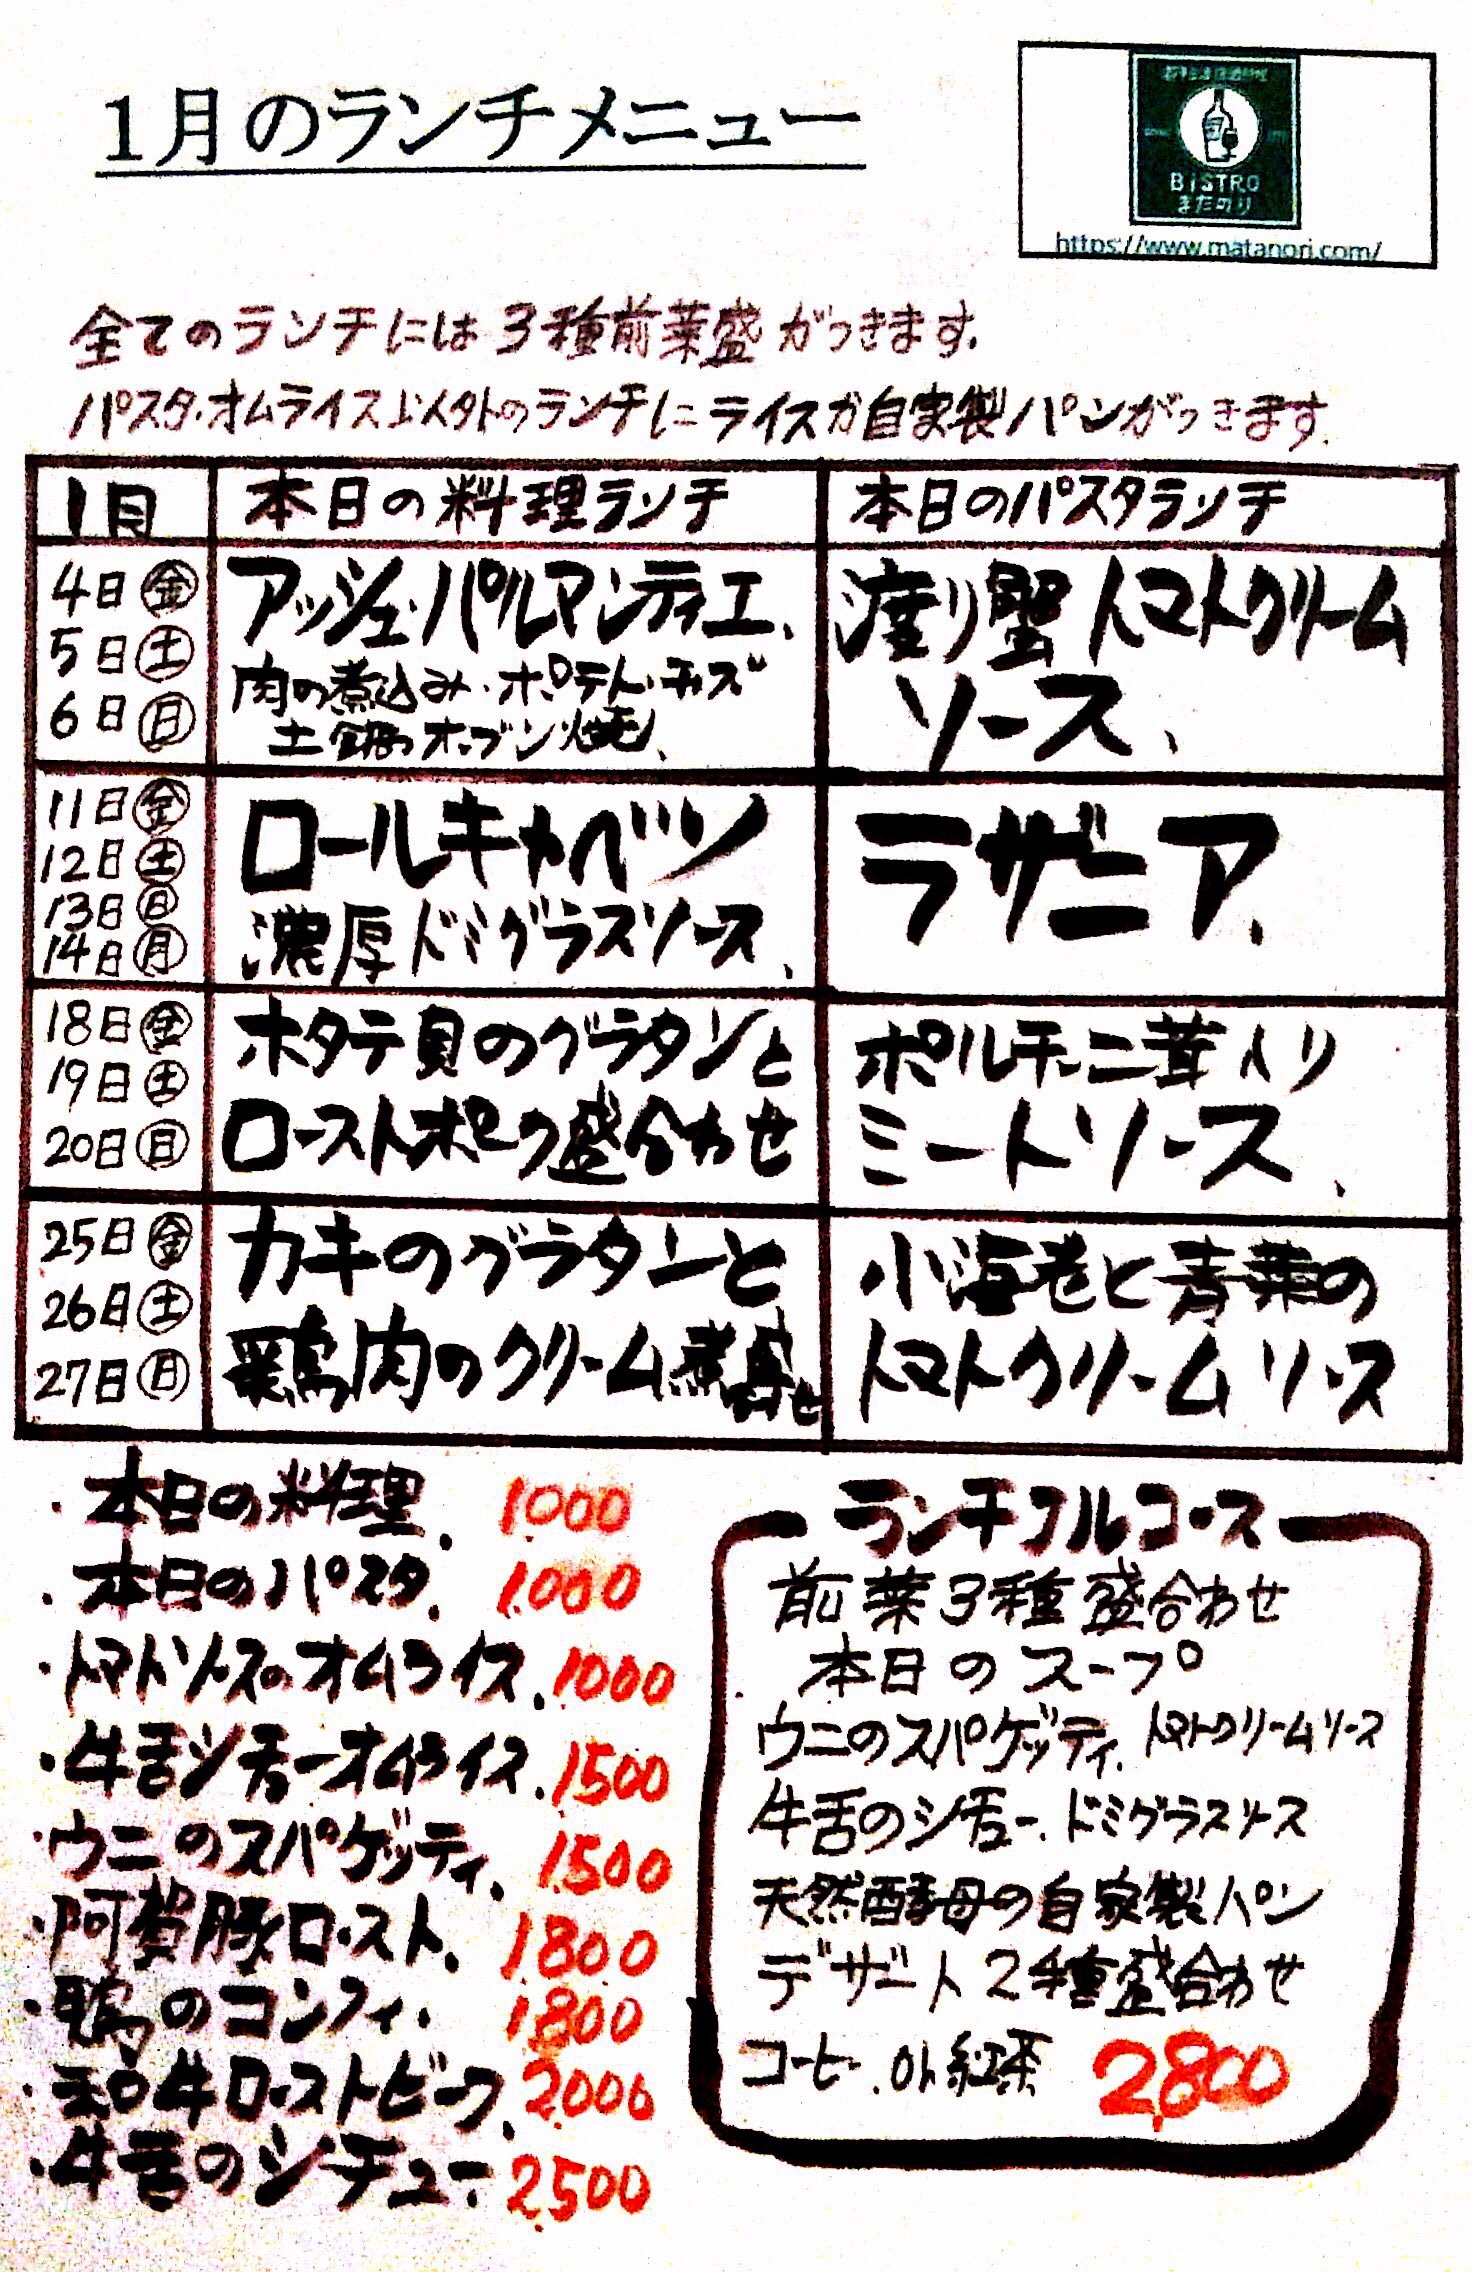 1月のランチメニュー
BiSTRO
またのり
https://www.matanori.com/
全てのランチには3種前菜盛がつきます.
パスタ・オムライス以外のランチにライスか自家製パンがつきます.
1月 本日の料理ランチ 本日のパスタランチ
4日㊎
5日㊏
6日㊐
アッシェ・パルマンティエ、
肉の煮込み・ポテト・チーズ
土鍋オーブン焼、
渡り蟹トマトクリーム
ソース、
11日㊎
12日㊏
13日㊐
14日㊊
ロールキャベツ
濃厚ドミグラスソース、
ラザニア、
18日㊎
19日㊏
20日㊐
ホタテ貝のグラタンと
ローストポーク盛合わせ
ポルチーニ茸入り
ミートソース、
25日㊎
26日㊏
27日㊐
カキのグラタンと
鶏肉のクリーム煮盛合せ
小海老と青菜の
トマトクリームソース
・本日の料理. 1.000
・本日のパスタ. 1.000
・トマトソースのオムライス. 1000
・牛舌シチューオムライス. 1500
・ウニのスパゲッティ. 1500
・阿賀豚ロースト. 1800
・鴨のコンフィ. 1800
・和牛ローストビーフ. 2.000
・牛舌のシチュー 2500
ランチフルコース
前菜3種盛合わせ
本日のスープ
ウニのスパゲッティ. トマトクリームソース
牛舌のシチュー. ドミグラスソース
天然酵母の自家製パン
デザート2種盛合わせ
コーヒー. or 紅茶 2,800